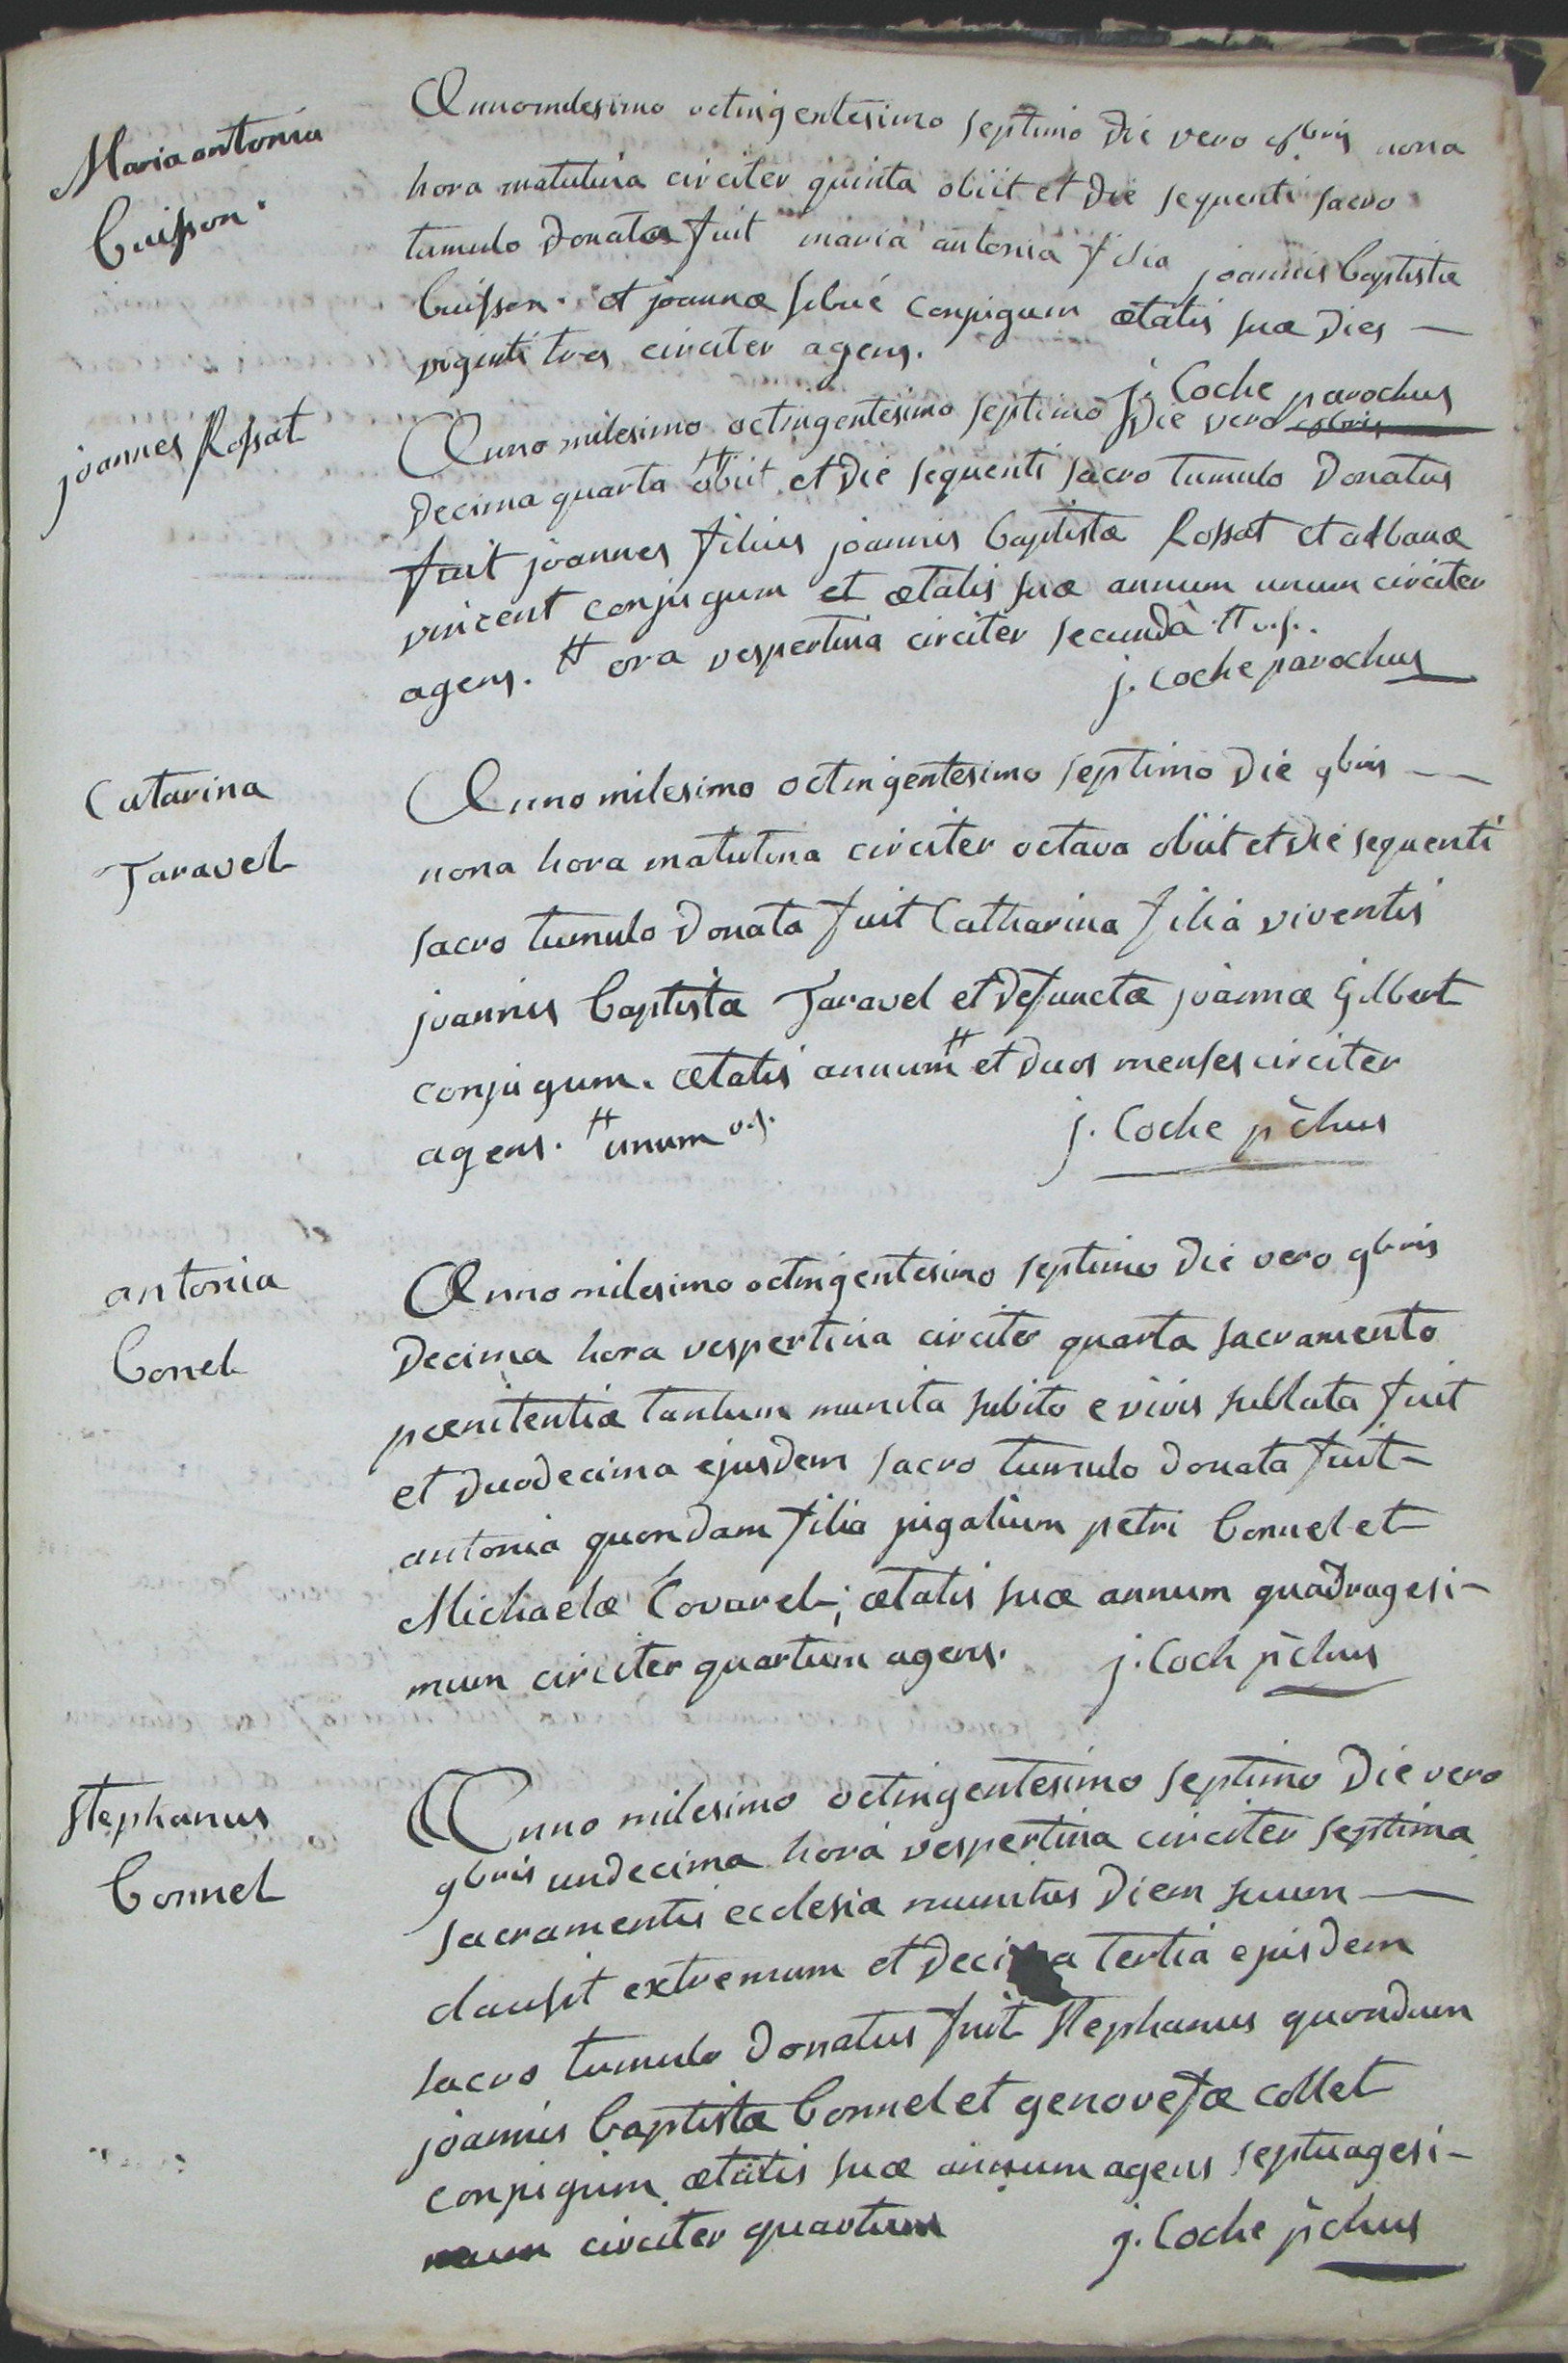 Maria antonia
buisson.
Anno milesimo octingentesimo septimo die vero 9bris nona
hora matutina circiter quinta obiit et die sequenti sacro
tumulo donata fuit maria antonia filia joannis baptistæ
buisson. et joannæ conjugum ætatis suæ dies —
viginti tres circiter agens.
j. Coche parochus
joannes Rossat
Anno milesimo octingentesimo septimo die vero 9bris
decima quarta # obiit et die sequenti sacro tumulo donatus
fuit joannes filius joannis baptistæ Rossat et albanæ
vincent conjugum et ætatis suæ annum unum circiter
agens. # ora vespertina circiter secunda # v.s.
j. coche parochus
Catarina
Taravel
Anno milesimo octingentesimo septimo die 9bris —
nona hora matutina circiter octava obiit et die sequenti
sacro tumulo donata fuit Catharina filia viventis
joannis baptista Taravel et defunctæ joannæ Gilbert
conjugum. ætatis annum # et duos menses circiter
agens. # unum v.s.
j. Coche pchus
antonia
bonel
Anno milesimo octingentesimo septimo die vero 9bris
decima hora vespertina circiter quarta sacramento
pœnitentiæ tantum munita subito e vivis sublata fuit
et duodecima ejusdem sacro tumulo donata fuit -
antonia quondam filia jugalium petri bonnel et
Michaelæ Covarel; ætatis suæ annum quadragesi-
mum circiter quartum agens.
j. Coch pchus
Stephanus
bonnel
Anno milesimo octingentesimo septimo die vero
9bris undecima hora vespertina circiter septima
sacramentis ecclesiæ munitus diem suum —
clausit extremum et deci a tertia ejusdem
sacro tumulo donatus fuit Stephanus quondam
joannis baptistæ bonnel et genovefæ collet
conjugum ætatis suæ annum agens septuagesi-
mum circiter quartum
j. Coche pchus